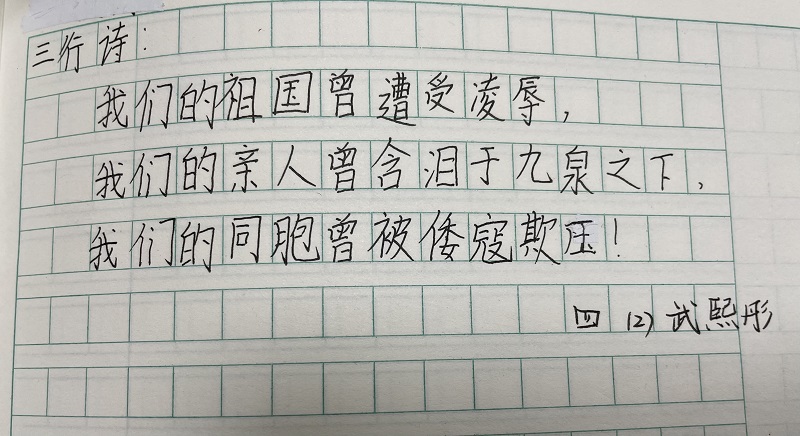 三行诗:
我们的祖国曾遭受凌辱,
我们的亲人曾含泪于九泉之下,
我们的同胞曾被倭寇欺压!
四 (2) 武熙彤